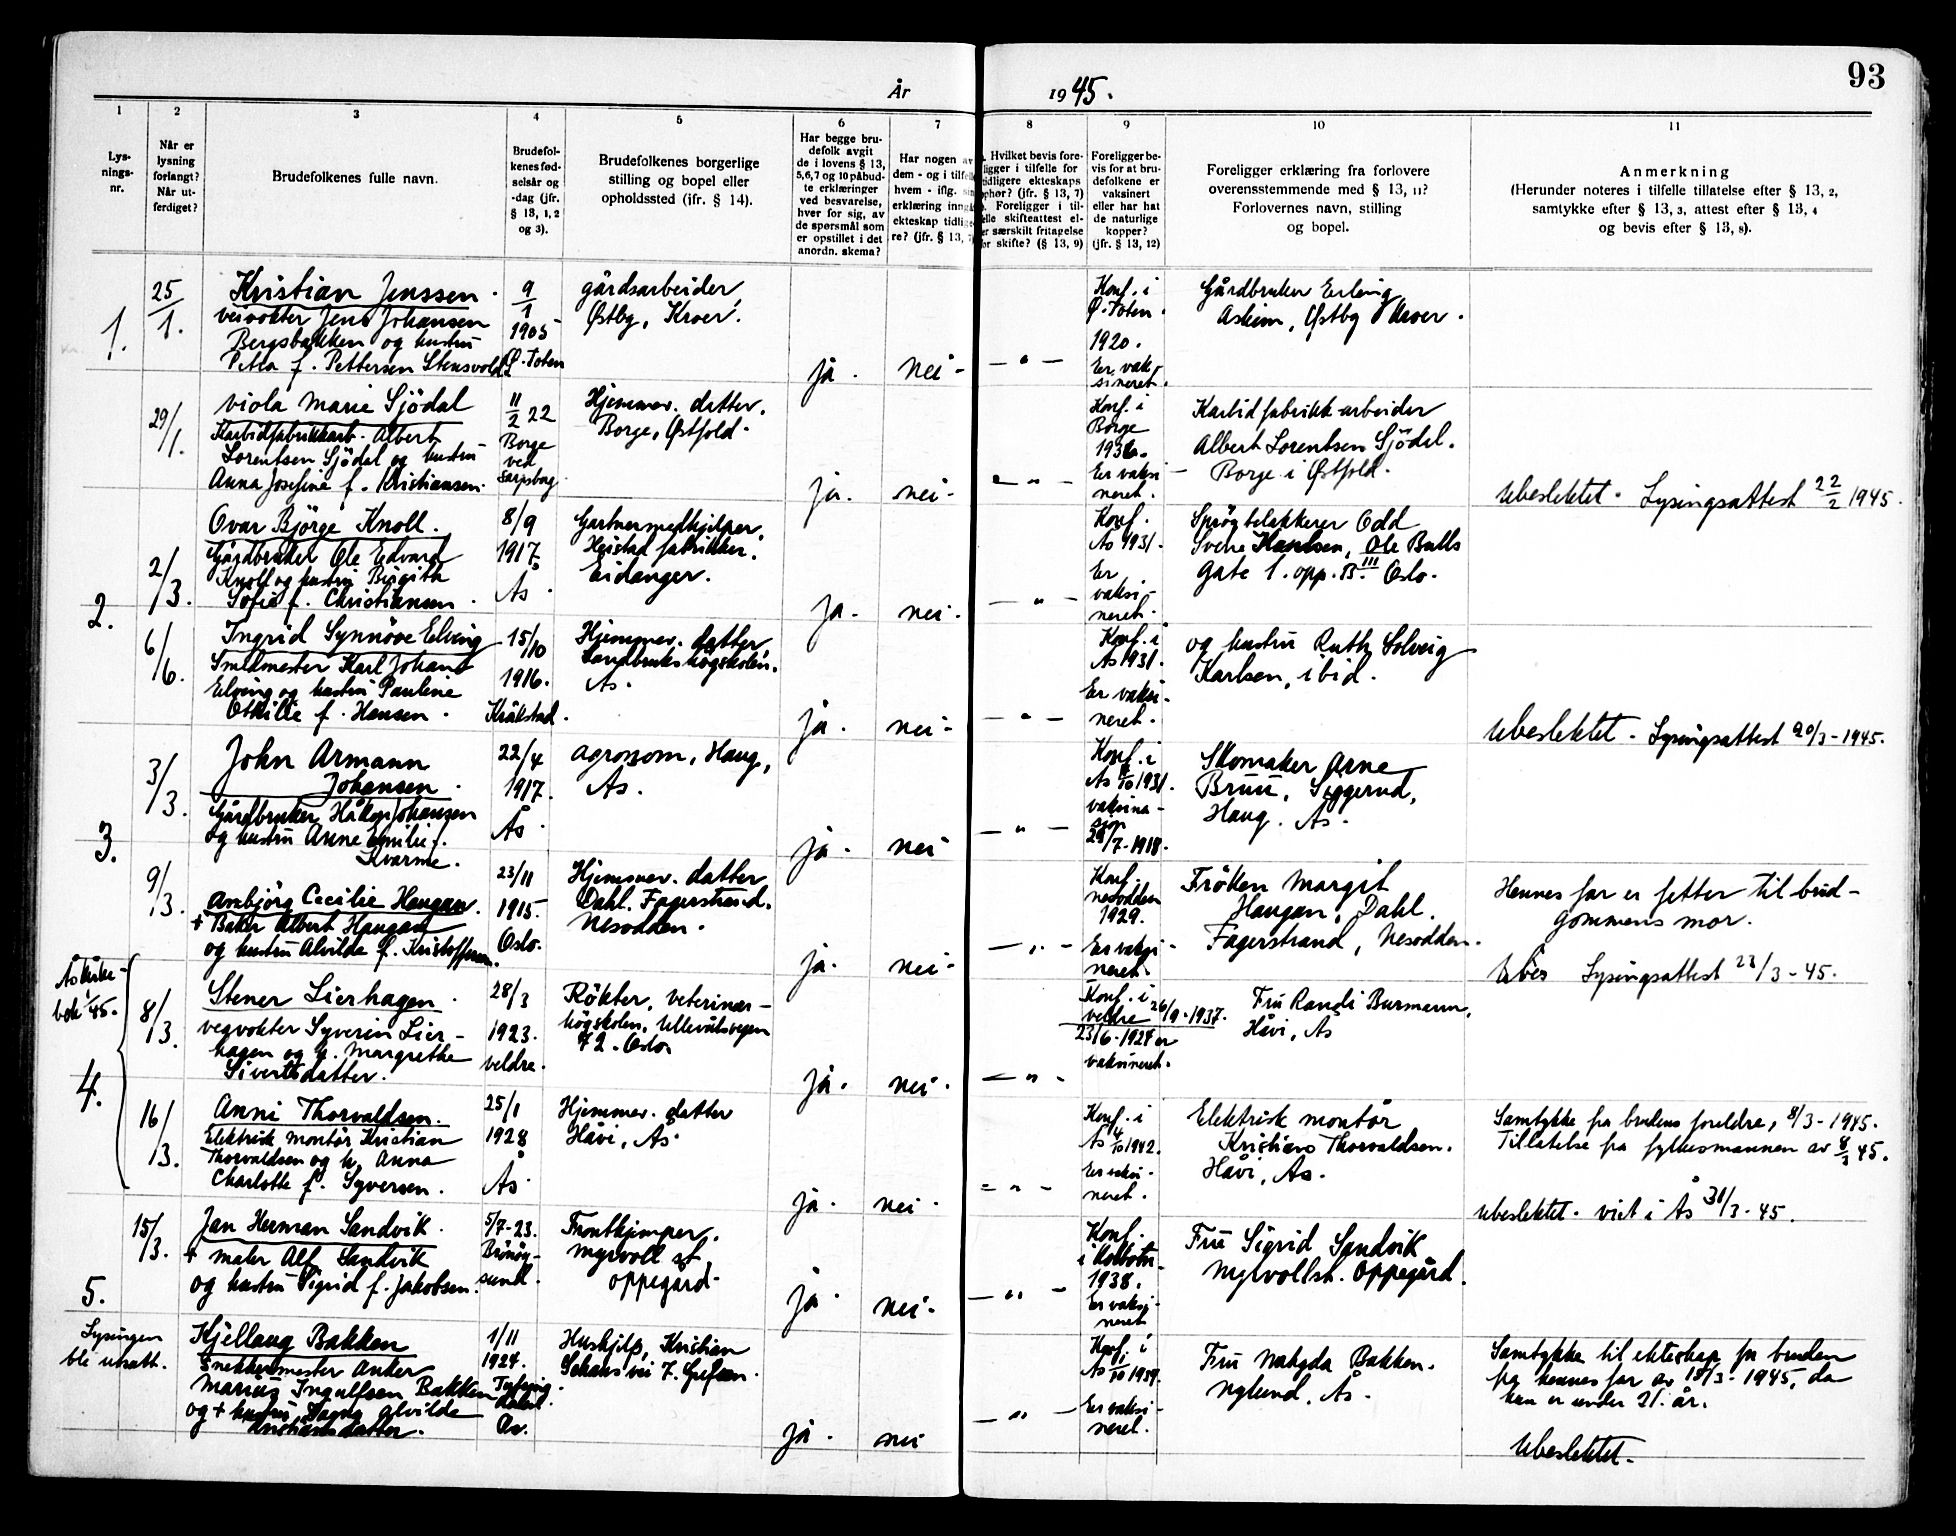 93
År 1945.
1 2 3 4 5 6 7 8 9 10 11
Lys-
nings-
nr.
Når er
lysning
forlangt?
Når ut-
ferdiget?
Brudefolkenes fulle navn.
Brudefol-
kenes fød-
selsår og
-dag (jfr.
§ 13, 1, 2
og 3).
Brudefolkenes borgerlige
stilling og bopel eller
opholdssted (ifr. § 14).
Har begge bru-
defolk avgit
de i lovens § 13,
5,6,7 og 10 påbud-
te erklæringer
ved besvarelse,
hver for sig, av
de spørsmål som
er opstillet i det
anordn. skema?
Har nogen av
dem - og i tilfelle
hvem - iflg.
erklæring inngått
ekteskap tidlige-
re? (jfr. § 13, 7)
Hvilket bevis fore-
ligger i tilfelle for
tidligere ekteskaps
ophør? (jfr. § 13, 7)
Foreligger i til-
felle skifteattest el-
er særskilt fritagelse
for skifte? (§ 13, 9)
Foreligger be-
vis for at bru-
defolkene er
vaksinert
eller har hat
de naturlige
kopper?
(jfr. § 13, 12)
Foreligger erklæring fra forlovere
overensstemmende med § 13, 11?
Forlovernes navn, stilling
og bopel.
Anmerkning
(Herunder noteres i tilfelle tillatelse efter § 13, 2,
samtykke efter § 13, 3, attest efter § 13, 4
og bevis efter § 13, 8).
1.
25/1.
Kristian Jenssen.
veivokter Jens Johansen
Bergsbakken og hustru
Petra f. Pettersen Stensvold
9/1
1905
Ø. Toten
gårdsarbeider,
Østby, Kroer.
ja.
nei -
- " -
Konf. i
Ø. Toten.
1920.
Er vak-
sineret.
Gårdbruker Erling
Askim, Østby Kroer.
29/1.
Viola Marie Sjödal
Karbidfabrikkarb. Albert
Lorentsen Sjödal og hustru
Anna Josefine f. Kristiansen.
11/2 22
Borge
ved
Sarpsborg
Hjemmev. datter.
Borge, Østfold.
ja.
nei -
- " -
Konf. i
Borge
1936.
Er vaksi-
neret.
Karbidfabrikk arbeider
Albert Lorentsen Sjödal.
Borge i Østfold.
Ubeslektet. Lysingsattest 22/2 1945.
2.
2/3.
Ovar Björge Knoll.
Gårdbruker Ole Edvard
Knoll og hustru Birgith
Sofie f. Christiansen.
8/9
1917.
Ås
Gartnermedhjelper,
Heistad fabrikker.
Eidanger.
ja.
nei.
- " -
Konf.
Ås 1931.
Er
vaksi-
neret.
Odd
Sverre Karlsen, Ole Bulls
gate 1. opp. B. III Oslo.
6/6.
Ingrid Synnöve Elving
Smedmester Karl Johan
Elving og hustru Pauline
Othilie f. Hansen.
15/10
1916.
Kråkstad.
Hjemmev. datter,
Landbrukshögskolen.
Ås.
ja.
nei -
- " -
Konf. i
Ås 1931.
Er vaksi-
neret.
og hustru Ruth Solveig
Karlsen, ibid.
Ubeslektet. Lysingsattest 20/3 - 1945.
3.
3/3.
John Armann
Johansen.
Gårdbruker Håkon Johansen
og hustru Anne Emilie f.
Kvarme.
22/4
1917.
Ås.
agronom, Haug,
Ås.
ja.
nei
- " -
Konf. i
Ås 1931.
vaksina-
sjon
/7-1918.
Skomaker Arne
Bruu, Siggerud,
Haug. Ås.
9/3.
Anbjörg Cecilie Haugan.
+ Baker Albert Haugan
og hustru Alvilde f. Kristoffersen.
23/11
1915.
Oslo.
Hjemmev. datter
Dahl. Fagerstrand.
Nesodden.
ja.
nei -
- " -
Konf.
Nesodden
1929.
Er vaksi-
neret.
Fröken Margit
Haugan, Dahl.
Fagerstrand, Nesodden.
Hennes far er fetter til brud-
gommens mor.
Lysingsattest 23/3 - 45.
4.
8/3.
Stener Lierhagen.
vegvokter Syverin Lier-
hagen og h. Margrethe
Sivertsdatter.
28/3
1923.
Veldre.
Rökter, veterinær-
högskolen, Ullevålsvegen
72. Oslo.
ja.
nei.
- " -
Konf. i
Veldre 26/9-1937.
23/6-1924 er
vaksineret.
Fru Randi Burmann,
Håvi, Ås
16/3.
Anni Thorvaldsen.
Elektrisk montör Kristian
Thorvaldsen og h. Anna
Charlotte f. Syversen.
25/1
1928
Ås
Hjemmev. datter
Håvi, Ås.
ja.
nei.
- " -
Konf. i
Ås 4/10 1942.
Er vaksi-
neret.
Elektrisk montör
Kristian Thorvaldsen.
Håvi, Ås.
Samtykke fra brudens foreldre, 8/3 - 1945.
Tillatelse fra fylkesmannen av 8/3 45.
Ubeslektet. viet i Ås 31/3 - 45.
5.
Lysingen
ble utsatt.
15/3.
Jan Herman Sandvik.
+ maler Alf Sandvik
og hustru Sigrid f. Jakobsen.
5/7-23.
Brönöy-
sund.
Frontkjemper,
Myrvoll st
Oppegård.
ja.
nei.
- " -
Konf.
i Kolbotn
1938.
Er vaksi-
neret
Fru Sigrid Sandvik
Myrvollst. Oppegård.
Kjellaug Bakken
Snekkermester Anker
Marius Ingulfsen Bakken
og + hustru Dagny Alvilde
Kristiansdatter.
1/11
1924.
Ås.
Hushjelp, Kristian
Schaus vei 7. Grefsen.
ja.
nei
- " -
Konf. i
Ås 1/10 1939.
Er vaksi-
neret.
Fru Bakken.
Nylund, Ås.
Samtykke til ekteskap for bruden
fra hennes far av 15/3 - 1945, da
hun er under 21. år.
Ubeslektet.